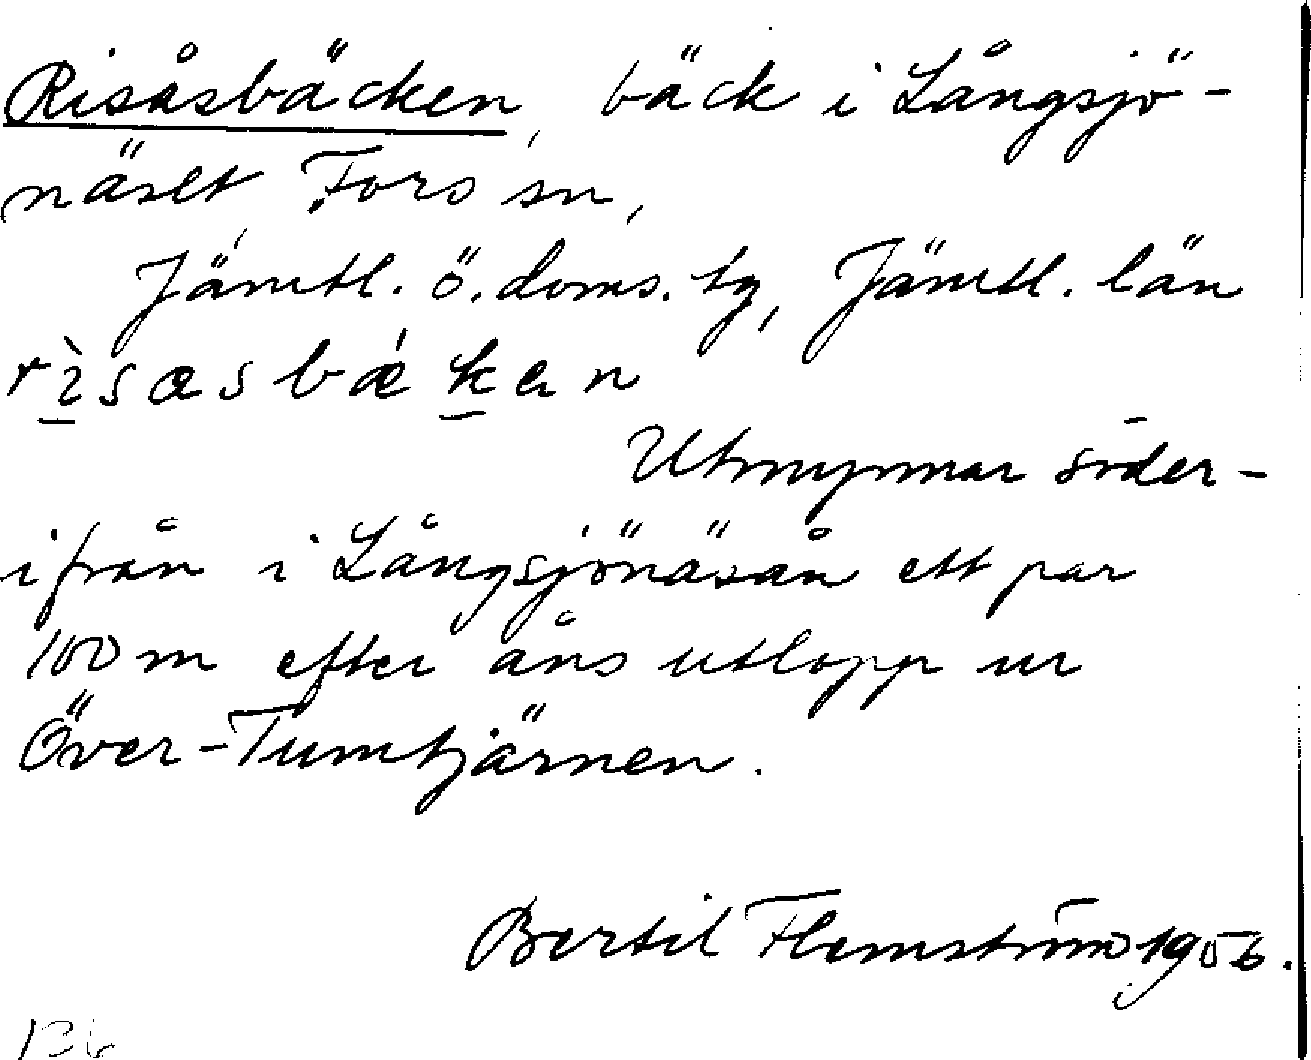 Risåsbäcken, bäck i Långsjö-
näset, Fors sn,
Jämtl. ö. doms. tg, Jämtl. län
rìsasbǽken
Utmynnar söder-
ifrån i Långsjönäsån ett par
100 m efter åns utlopp ur
Över-Tumtjärnen.
Bertil Flemström 1956.
136